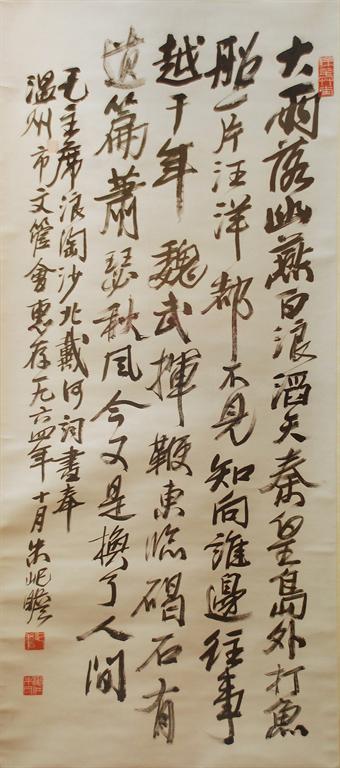 大雨落幽燕白浪滔天秦皇島外打魚
船一片汪洋都不見知向誰邊往事
越千年魏武揮鞭東臨碣石有
遺篇蕭瑟秋风今又是換了人間
毛主席浪淘沙北戴河詞書奉
溫州市文管會惠存一九六四年十月朱屺瞻